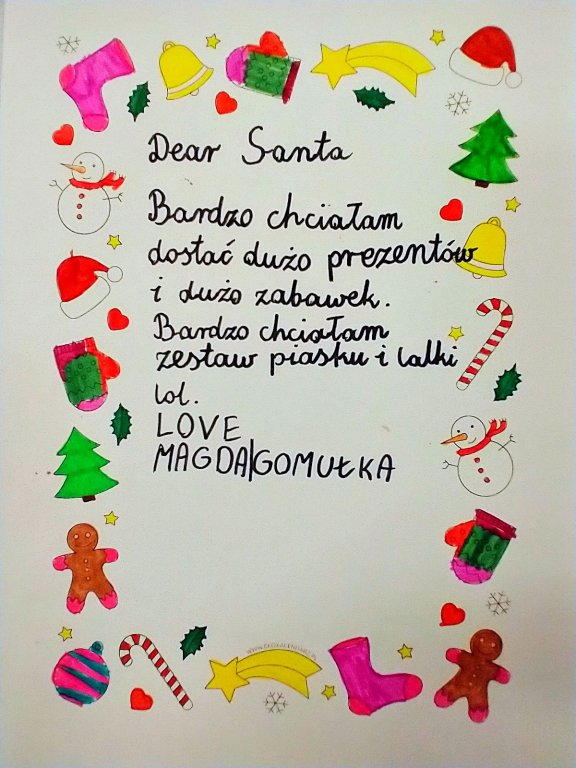 Dear Santa
Bardzo chciałam
dostać dużo prezentów
i dużo zabawek.
Bardzo chciałam
zestaw piasku i lalki
lol.
LOVE
MAGDA|GOMUŁKA